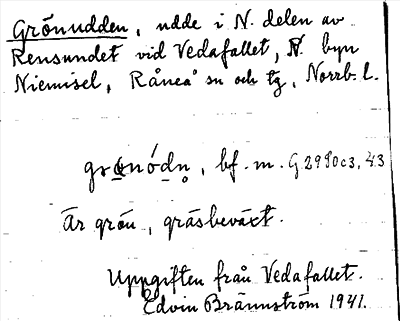 Grönudden, udde i N. delen av
Rensundet vid Vedafallet, N. byn
Niemisel, Råneå sn och tg, Norrb. l.
bf. m. G 2990c3, 43
Är grön, gräsbeväxt.
Uppgiften från Vedafallet.
Edvin Brännström 1941.